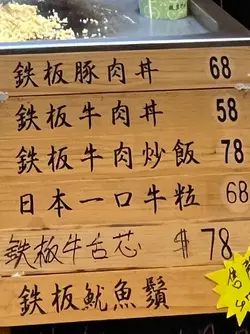 鉄板豚肉丼 68
鉄板牛肉丼 58
鉄板牛肉炒飯 78
日本一口牛粒 68
鉄板牛舌芯 $78
鉄板魷魚鬚